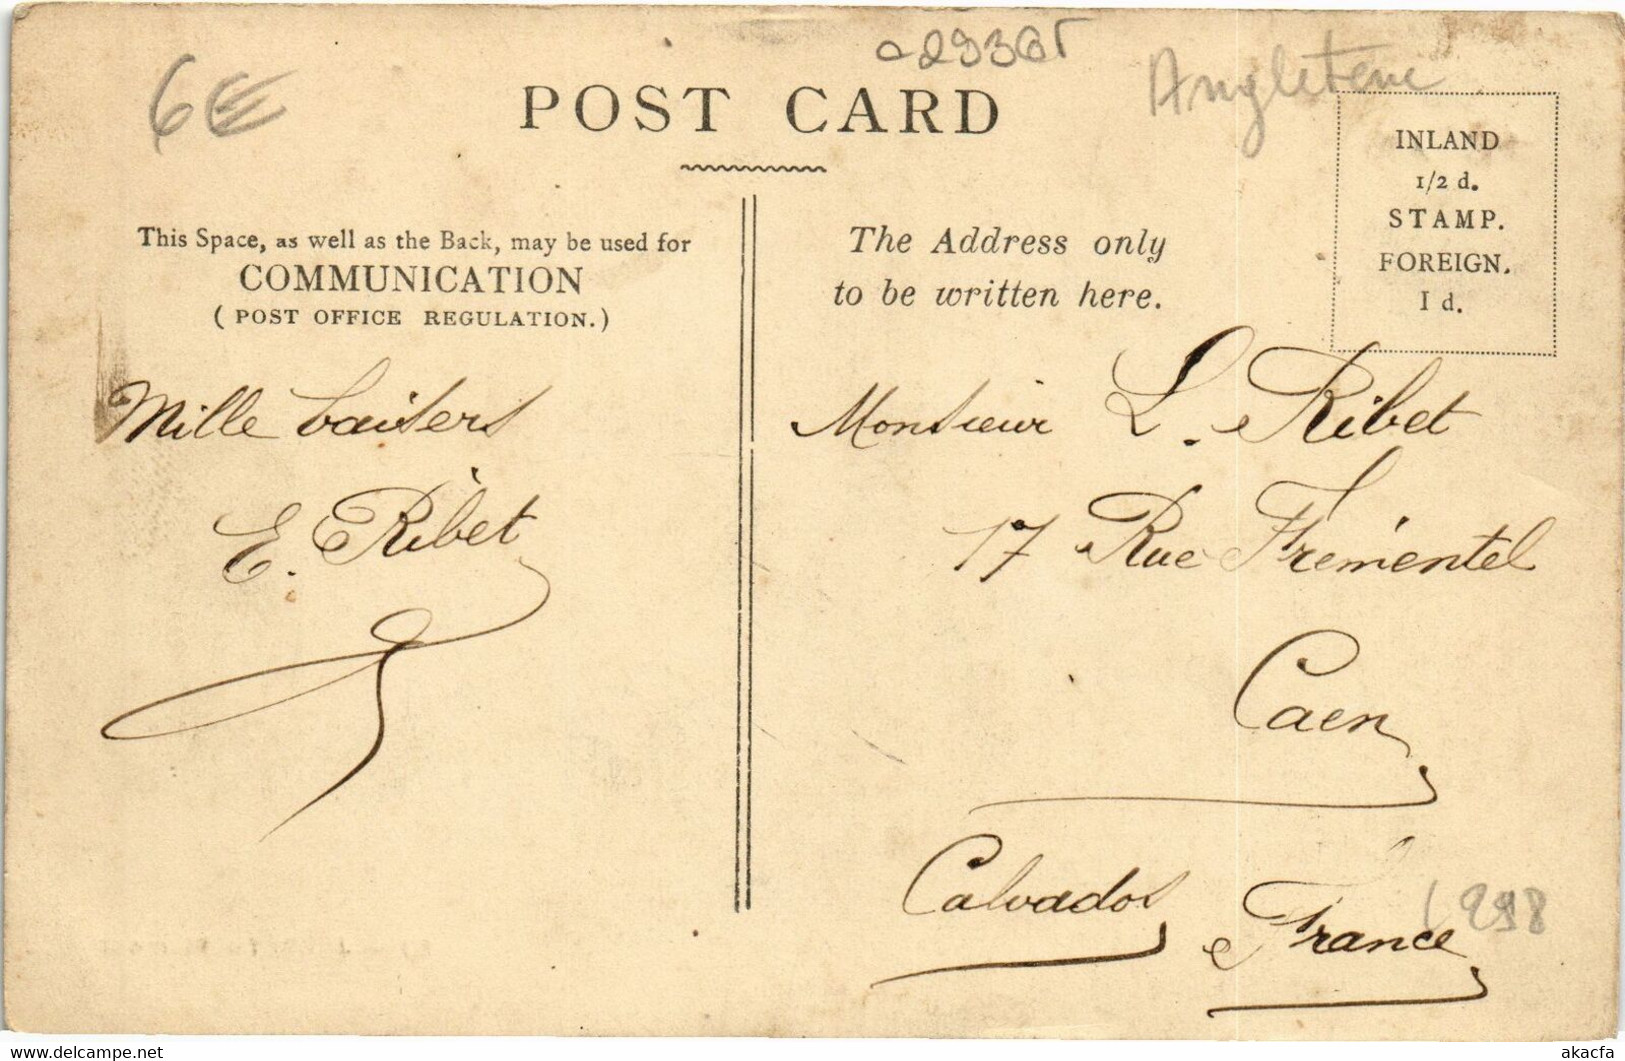 6€
29361
Angleterre
POST CARD
INLAND
1/2 d.
STAMP.
FOREIGN.
1 d.
This Space, as well as the Back, may be used for
COMMUNICATION
( POST OFFICE REGULATION.)
The Address only
to be written here.
Mille baisers
E. Ribet
Monsieur L. Ribet
17 Rue Frémentel
Caen
Calvados France
298
www.delcampe.net
akacfa